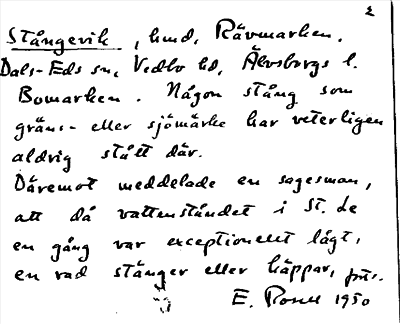 2
Stångevik, hmd, Rävmarken.
Dals-Eds sn, Vedbo hd, Älvsborgs l.
Bomarken. Någon stång som
gräns- eller sjömärke har veterligen
aldrig stått där.
Däremot meddelade en sagesman,
att då vattenståndet i St. Le
en gång var exceptionellt lågt,
en rad stänger eller käppar, forts.
E. 1950